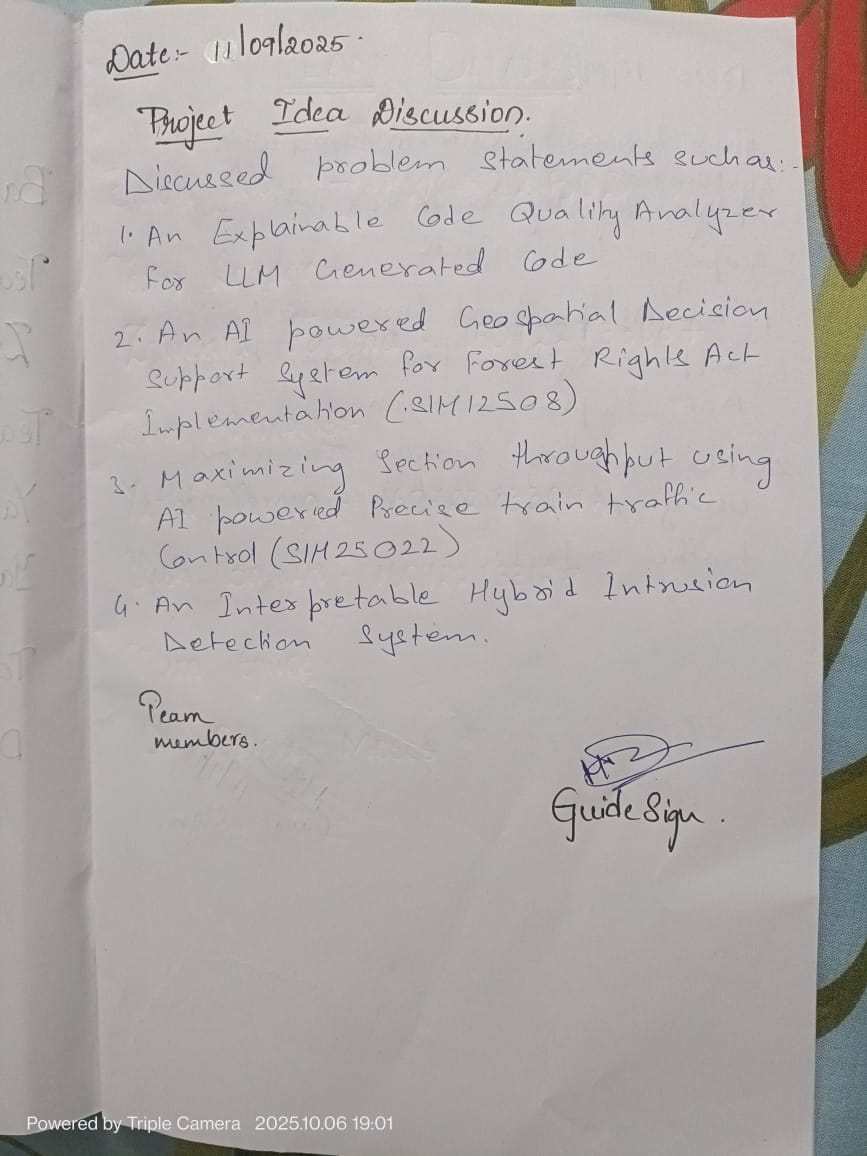 Date:- 11/09/2025.
Project Idea Discussion.
Discussed problem statements such as:-
1. An Explainable Code Quality Analyzer
for LLM Generated Code
2. An AI powered Geospatial Decision
Support System for Forest Rights Act
Implementation (SIH12508)
3. Maximizing Section throughput using
AI powered Precise train traffic
Control (SIH25022)
4. An Interpretable Hybrid Intrusion
Detection System.
Team
members.
Guide Sign.
Powered by Triple Camera 2025.10.06 19:01